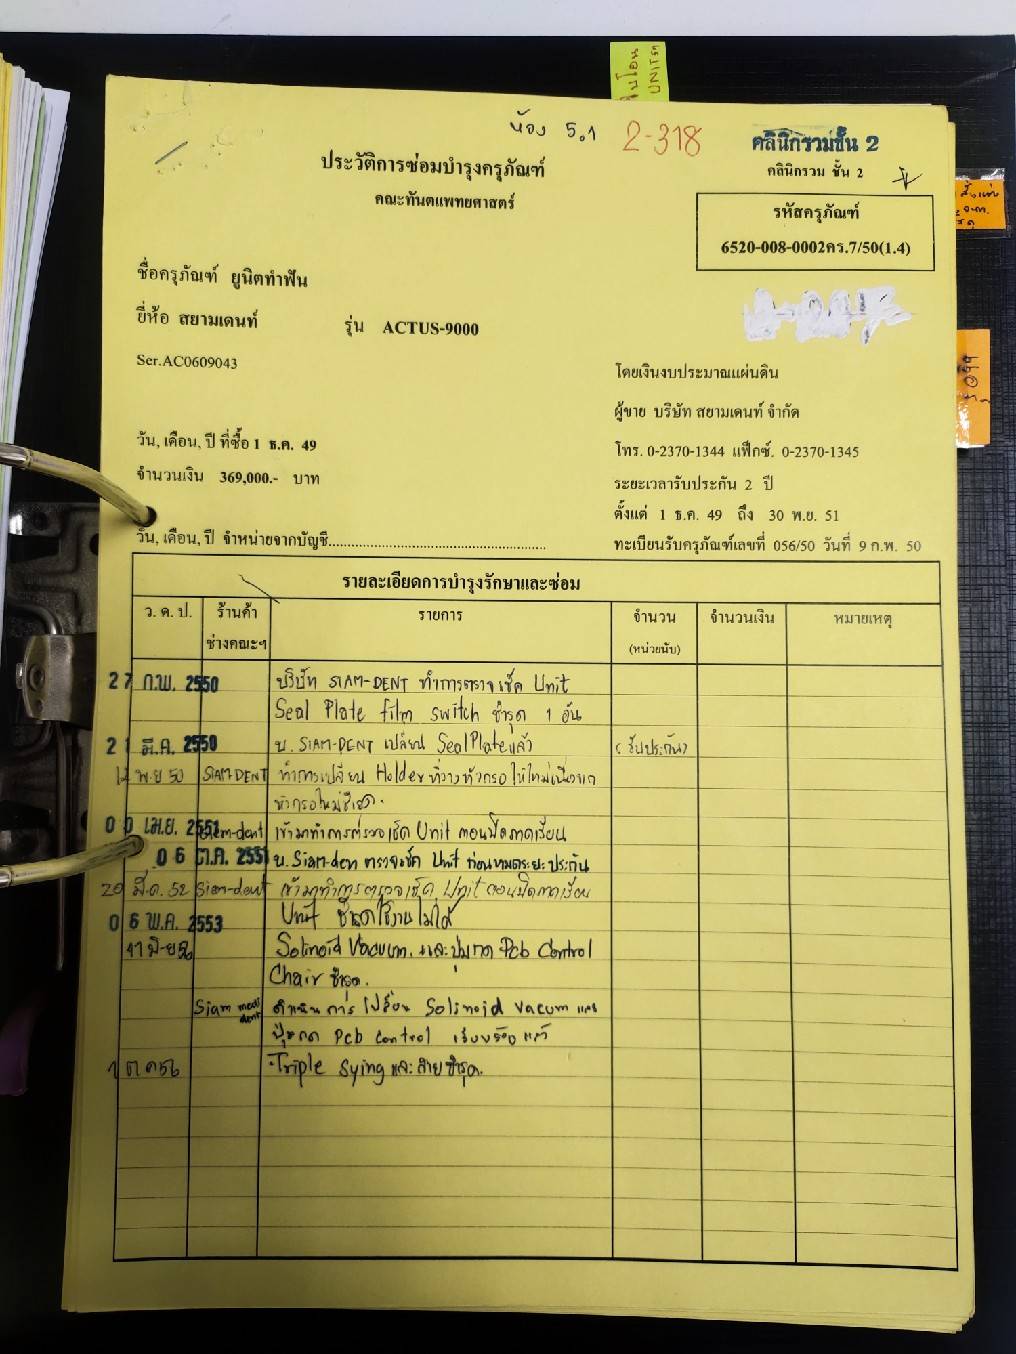 ใบโอน
UNITฟ
ห้อง 5.1 2-318 คลินิกรวมชั้น 2
ประวัติการซ่อมบำรุงครุภัณฑ์ คลินิกรวม ชั้น 2
คณะทันตแพทยศาสตร์
รหัสครุภัณฑ์
6520-008-0002คร.7/50(1.4)
ชื่อครุภัณฑ์ ยูนิตทำฟัน
ยี่ห้อ สยามเดนท์ รุ่น ACTUS-9000
Ser.AC0609043
โดยเงินงบประมาณแผ่นดิน
ผู้ขาย บริษัท สยามเดนท์ จำกัด
วัน, เดือน, ปี ที่ซื้อ 1 ธ.ค. 49 โทร. 0-2370-1344 แฟ็กซ์. 0-2370-1345
จำนวนเงิน 369,000.- บาท ระยะเวลารับประกัน 2 ปี
ตั้งแต่ 1 ธ.ค. 49 ถึง 30 พ.ย. 51
วัน, เดือน, ปี จำหน่ายจากบัญชี.................................................... ทะเบียนรับครุภัณฑ์เลขที่ 056/50 วันที่ 9 ก.พ. 50
รายละเอียดการบำรุงรักษาและซ่อม
ว. ด. ป. ร้านค้า รายการ จำนวน จำนวนเงิน หมายเหตุ
ช่างคณะฯ (หน่วยนับ)
27 ก.พ. 2550 บริษัท SIAM-DENT ทำการตรวจเช็ค Unit
Seal Plate film switch ชำรุด 1 อัน
21 มี.ค. 2550 บ. SIAM-DENT เปลี่ยน Seal Plate แล้ว (รับประกัน)
12 พ.ย 50 SIAM-DENT ทำการเปลี่ยน Holder ที่วางหัวกรอ ให้ใหม่เนื่องจาก
หัวกรอใหม่
เม.ย. 2551 Siam-dent เข้ามาทำการตรวจเช็ค Unit ตอนปิดภาคเรียน
06 ต.ค. 2551 บ. Siam-den ตรวจเช็ค Unit ก่อนหมดระยะประกัน
20 มี.ค. 52 Siam-dent เข้ามาทำการตรวจเช็ค Unit ตอนปิดภาคเรียน
06 พ.ค. 2553 Unit ชำรุดใช้งานไม่ได้
11 มิ-ย 56 Solinoid Vacuum. และปุ่มกด Pcb Control
Chair ชำรุด.
Siam medi dent ดำเนินการเปลี่ยน Solinoid Vacum และ
ปุ่มกด Pcb control เรียบร้อยแล้ว
1 ต.ค 56 -Triple Sying และสายชำรุด.